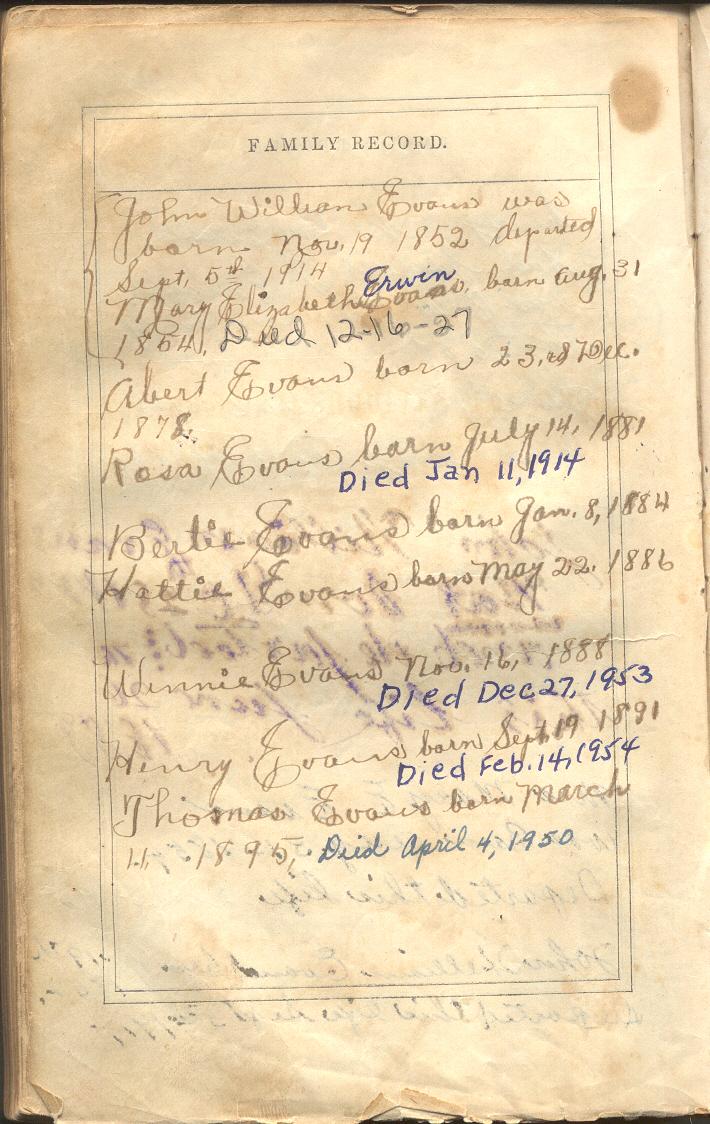 FAMILY RECORD.
John William Evans was
born Nov. 19 1852 departed
Sept. 5th 1914
Erwin
Mary Elizabeth Evans, born Aug. 31
1854, Died 12-16-27
Abert Evans born 23, Dec.
1878.
Rosa Evans born July 14, 1881
Died Jan 11, 1914
Bertie Evans born Jan. 8, 1884
Hattie Evans born May 22. 1886
Winnie Evans Nov. 16, 1888
Died Dec 27, 1953
Henry Evans born Sept. 19 1891
Died Feb. 14, 1954
Thomas Evans born March
11, 1895, Died April 4, 1950